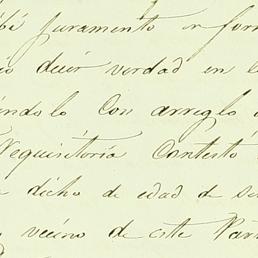 juramento en for
decir verdad en l
dolo Con arreglo
Requisitoria Contestó
dicho de edad de se
vecino de este Par